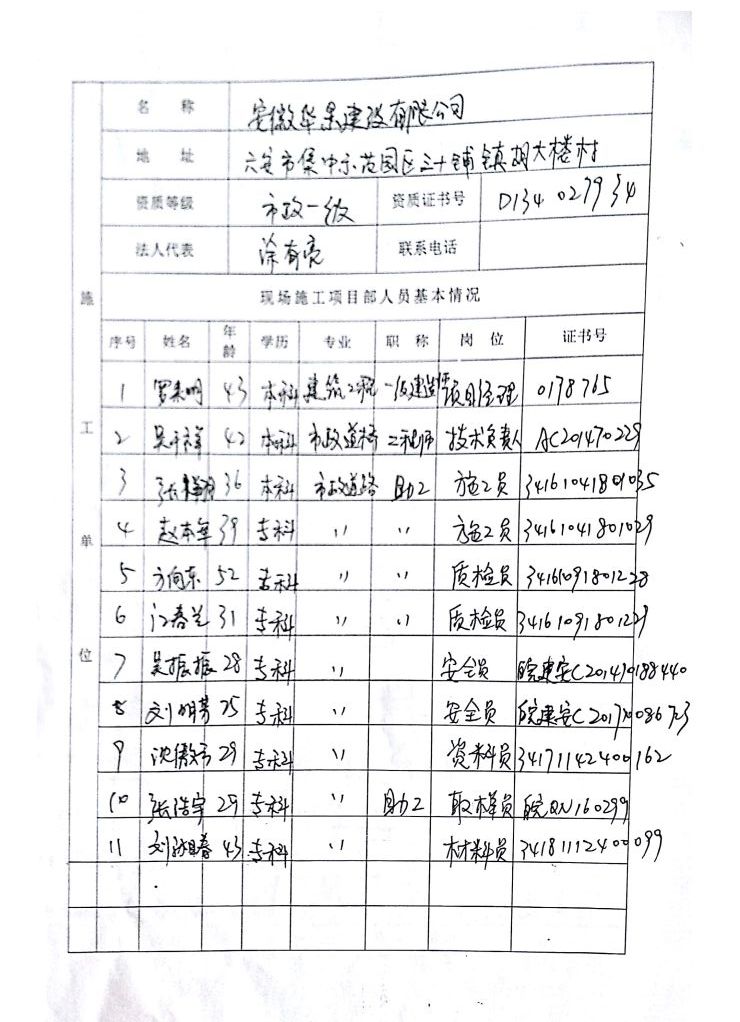 名 称 安徽华杲建设有限公司
地 址 六安市集中示范园区三十铺镇胡大楼村
资质等级 市政一级 资质证书号 D134027934
法人代表 涂有亮 联系电话
施工单位
现场施工项目部人员基本情况
序号 姓名 年龄 学历 专业 职称 岗位 证书号
1 罗来明 43 本科 建筑工程 一级建造师 项目经理 0178765
2 42 本科 市政道桥 工程师 技术负责人 AC201470229
3 36 本科 市政道路 助工 施工员 34161041801035
4 赵本军 39 专科 〃 〃 施工员 34161041801029
5 方向东 52 专科 〃 〃 质检员 34161091801228
6 江春兰 31 专科 〃 〃 质检员 34161091801229
7 吴振振 28 专科 〃 安全员 皖建安C201410188440
8 25 专科 〃 安全员
9 29 专科 〃 资料员 34171142400162
10 张浩宇 29 专科 〃 助工 取样员 皖QN160299
11 43 专科 〃 材料员 34181112400099